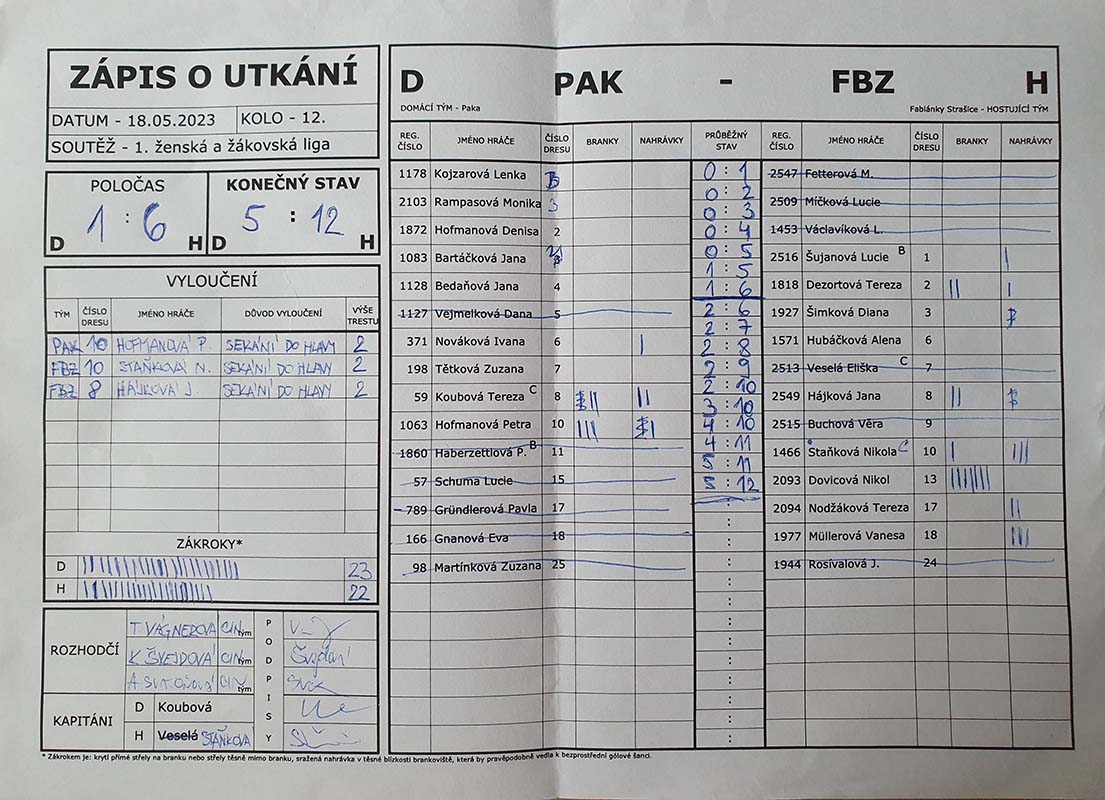 ZÁPIS O UTKÁNÍ
DATUM - 18.05.2023 KOLO - 12.
SOUTĚŽ - 1. ženská a žákovská liga
POLOČAS KONEČNÝ STAV
D 1 : 6 H D 5 : 12 H
VYLOUČENÍ
TÝM ČÍSLO DRESU JMÉNO HRÁČE DŮVOD VYLOUČENÍ VÝŠE TRESTU
PAK 10 HOFMANOVÁ P. SEKÁNÍ DO HLAVY 2
FBZ 10 STAŇKOVÁ N. SEKÁNÍ DO HLAVY 2
FBZ 8 HÁJKOVÁ J. SEKÁNÍ DO HLAVY 2
ZÁKROKY*
D 23
H 22
ROZHODČÍ
T VÁGNEROVÁ CIN tým
K ŠVEJDOVÁ CIN tým
CIN tým
PODPISY
KAPITÁNI
D Koubová
H Veselá STAŇKOVÁ
D PAK - FBZ H
DOMÁCÍ TÝM - Paka Fablánky Strašice - HOSTUJÍCÍ TÝM
REG. ČÍSLO JMÉNO HRÁČE ČÍSLO DRESU BRANKY NAHRÁVKY PRŮBĚŽNÝ STAV REG. ČÍSLO JMÉNO HRÁČE ČÍSLO DRESU BRANKY NAHRÁVKY
1178 Kojzarová Lenka
2103 Rampasová Monika 3
1872 Hofmanová Denisa 2
1083 Bartáčková Jana
1128 Bedaňová Jana 4
1127 Vejmelková Dana 5
371 Nováková Ivana 6 |
198 Tětková Zuzana 7
59 Koubová Tereza C 8 ||
1063 Hofmanová Petra 10 |||
1860 Haberzettlová P. B 11
57 Schuma Lucie 15
789 Gründlerová Pavla 17
166 Gnanová Eva 18
98 Martínková Zuzana 25
0 : 1
0 : 2
0 : 3
0 : 4
0 : 5
1 : 5
1 : 6
2 : 6
2 : 7
2 : 8
2 : 9
2 : 10
3 : 10
4 : 10
4 : 11
5 : 11
5 : 12
2547 Fetterová M.
2509 Míčková Lucie
1453 Václavíková L.
2516 Šujanová Lucie B 1 |
1818 Dezortová Tereza 2 || |
1927 Šimková Diana 3
1571 Hubáčková Alena 6
2513 Veselá Eliška C 7
2549 Hájková Jana 8 ||
2515 Buchová Věra 9
1466 Staňková Nikola C 10 | |||
2093 Dovicová Nikol 13
2094 Nodžáková Tereza 17 ||
1977 Müllerová Vanesa 18 |||
1944 Rosívalová J. 24
* Zákrokem je: krytí přímé střely na branku nebo střely těsně mimo branku, sražená nahrávka v těsné blízkosti brankoviště, která by pravěpodobně vedla k bezprostřední gólové šanci.